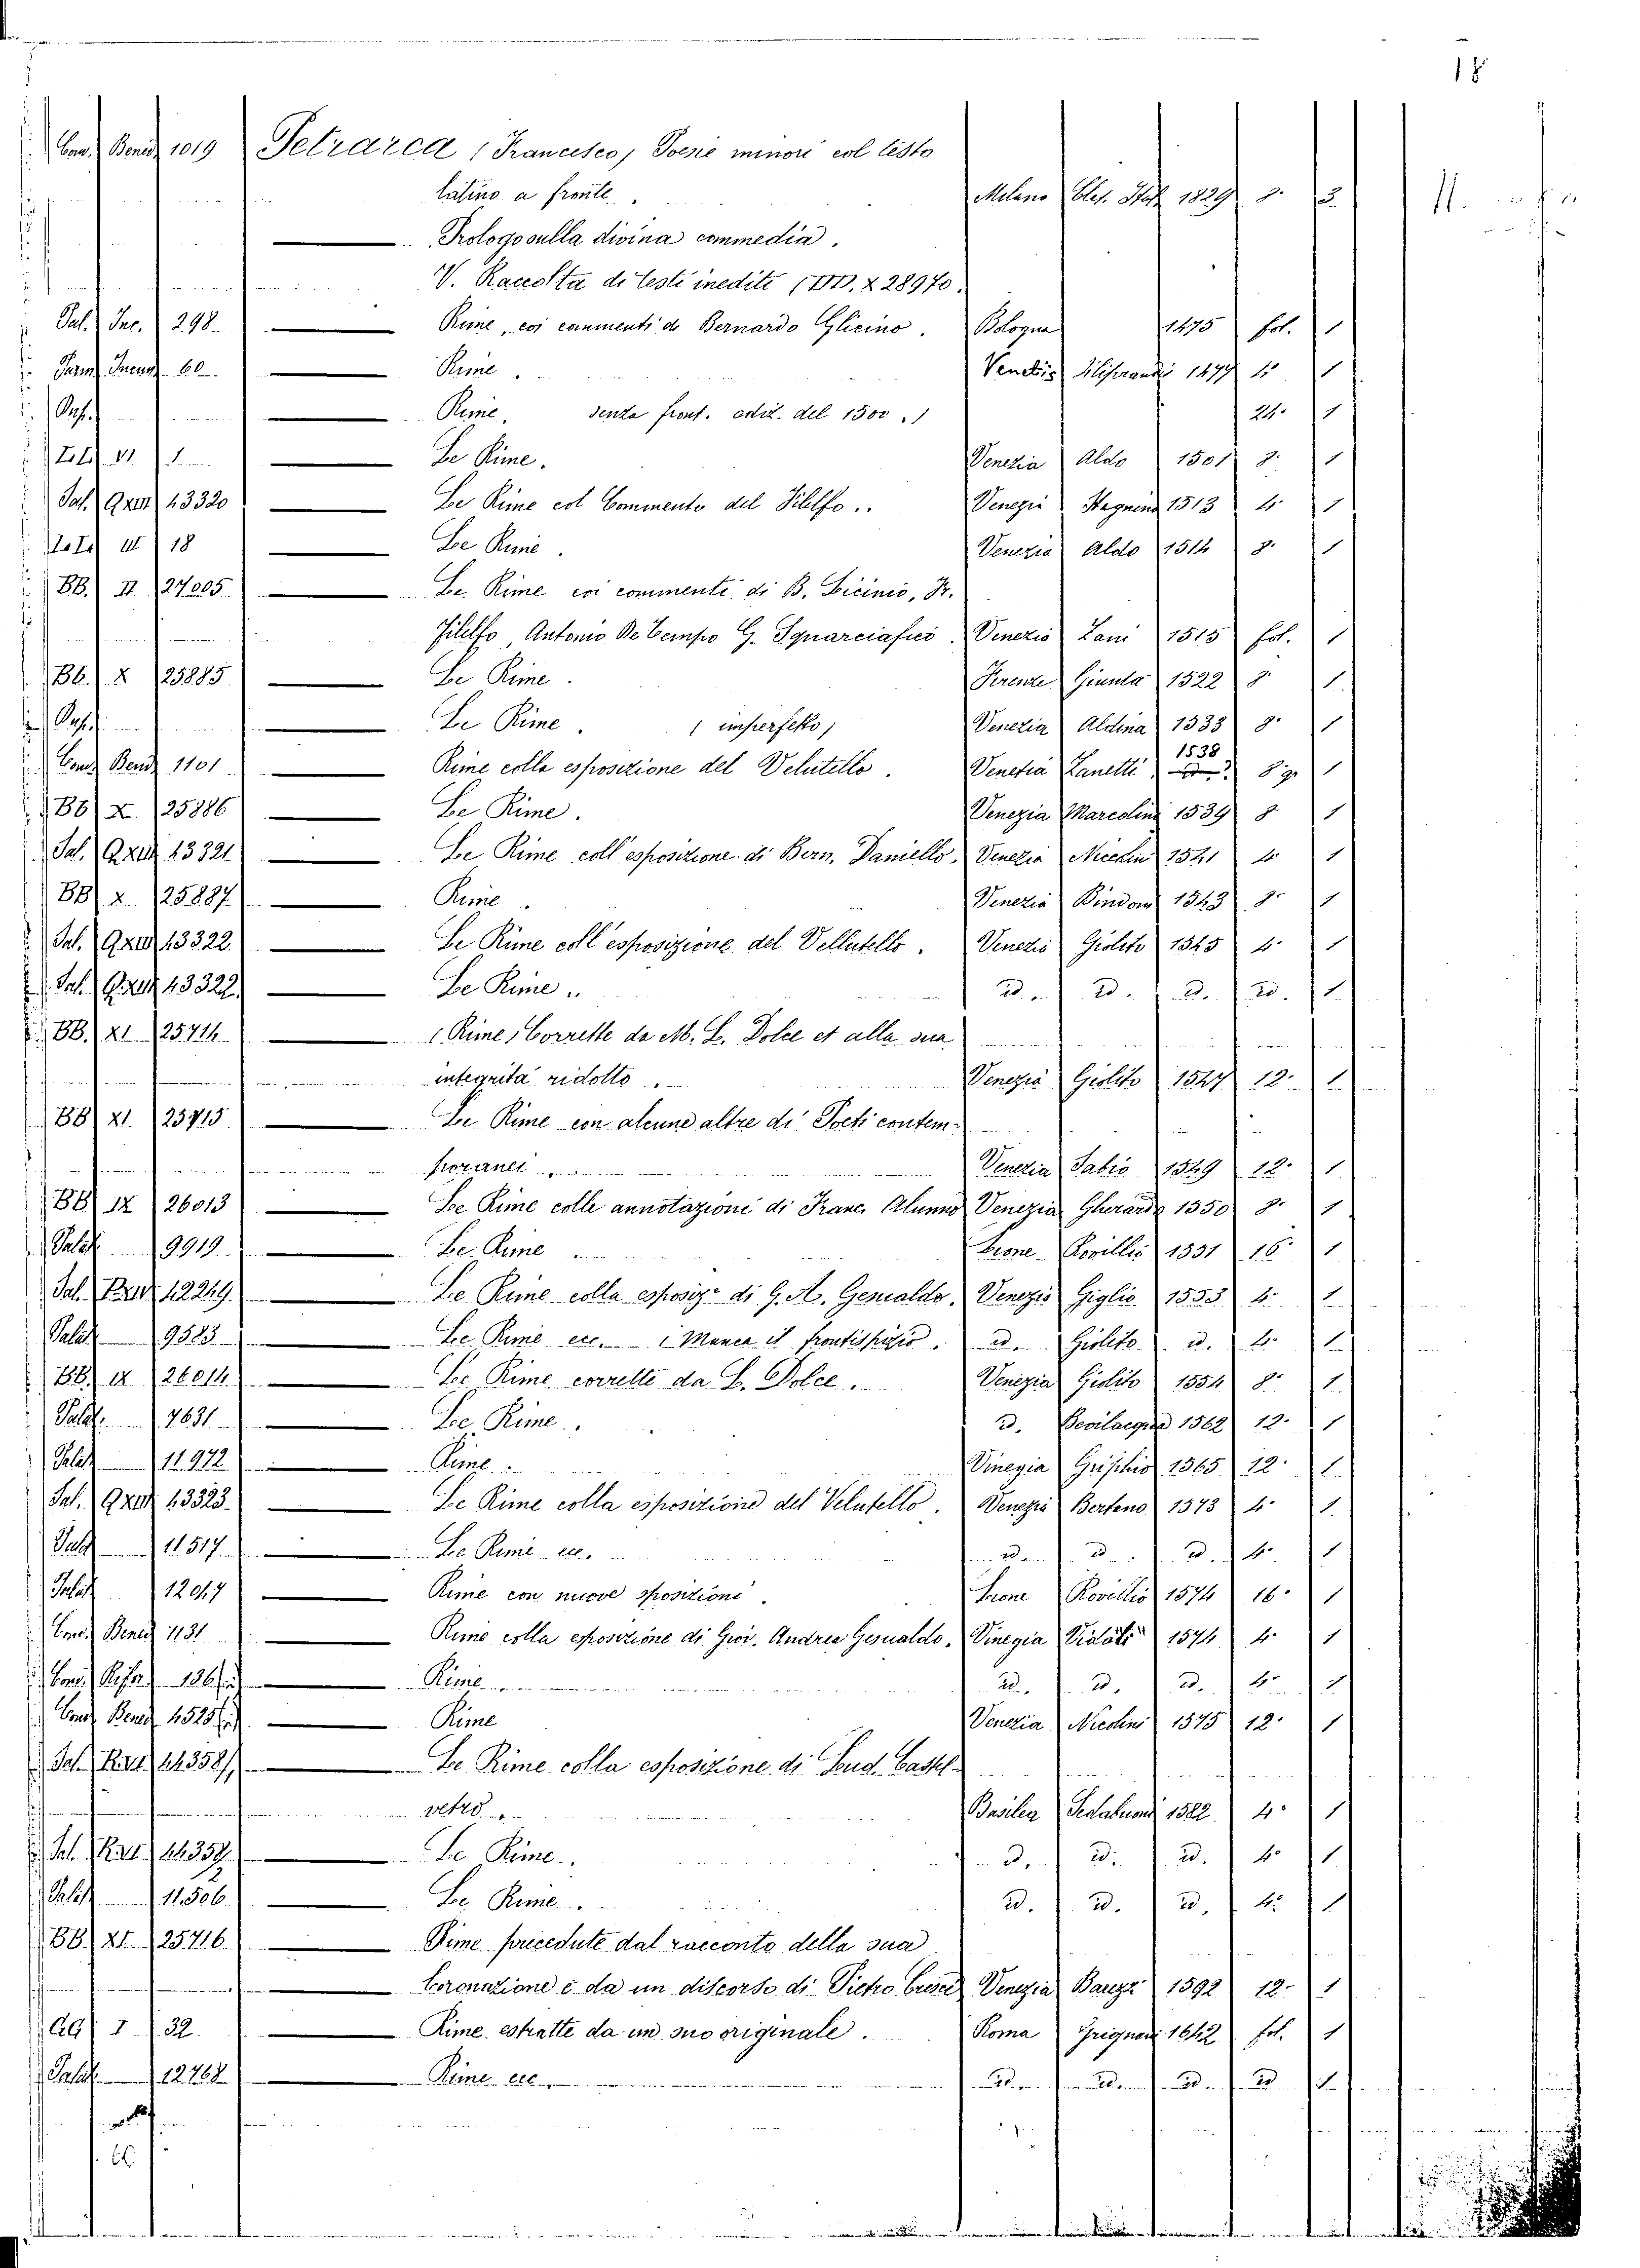 18
Cons. Bened. 1019 Petrarca (Francesco) Poesie minori col testo
latino a fronte. Milano Clas. Ital. 1829 8. 3 11.
——— Prologo sulla divina commedia.
V. Raccolta di testi inediti X 28970.
Pal. Inc. 298. ——— Rime, coi commenti di Bernardo Glicino. Bologna 1475 fol. 1
60 ——— Rime. Venetiis 1477 4. 1
——— Rime. senza front. ediz. del 1500. 24. 1
VI 1 ——— Le Rime. Venezia Aldo 1501 8. 1
Pal. 13320 ——— Le Rime col Commento del Filelfo.. Venezia Stagnino 1513 4. 1
III 18 ——— Le Rime. Venezia Aldo 1514 8. 1
BB. II 27005 ——— Le Rime coi commenti di B. Licinio, Fr.
Filelfo, Antonio De Tempo G. Squarciafico. Venezia Zani 1515 fol. 1
BB. X 25885 ——— Le Rime. Firenze Giunta 1522 8. 1
——— Le Rime. (imperfetto) Venezia Aldina 1533 8. 1
Cons. Bened. 1101 ——— Rime colla esposizione del Velutello. Venetia Zanetti 1538 8. 1
BB. X 25886 ——— Le Rime. Venezia Marcolini 1539 8. 1
Pal. 13321 ——— Le Rime coll'esposizione di Bern. Daniello. Venezia Nicolini 1541 4. 1
BB. X 25887 ——— Rime. Venezia Bindoni 1543 8. 1
Pal. 13322 ——— Le Rime coll'esposizione del Vellutello. Venezia Giolito 1545 4. 1
Pal. 13322 ——— Le Rime.. id. id. id. id. 1
BB. XI 25714 ——— (Rime) Corrette da M. L. Dolce et alla sua
integrità ridotto. Venezia Giolito 1547 12. 1
BB. XI. 25715 ——— Le Rime con alcune altre di Poeti contem-
poranei Venezia Sabio 1549 12. 1
BB. IX 26013 ——— Le Rime colle annotazioni di Franc. Alunno Venezia Gherardo 1550 8. 1
Palat. 9919 ——— Le Rime Lione Rovillio 1551 16. 1
Pal. 12249 ——— Le Rime colla esposiz.e di G. A. Gesualdo. Venezia Giglio 1553 4. 1
Palat. 9583 ——— Le Rime ecc. (Manca il frontispizio. id. Giolito id. 4. 1
BB. IX 26014 ——— Le Rime corrette da L. Dolce. Venezia Giolito 1554 8. 1
Palat. 7631 ——— Le Rime. id. Bevilacqua 1562 12. 1
Palat. 11972 ——— Rime. Vinegia Griphio 1565 12. 1
Pal. 13323 ——— Le Rime colla esposizione del Velutello. Venezia Bertano 1573 4. 1
Palat. 11517 ——— Le Rime ecc. id. id. id. 4. 1
Palat. 12047 ——— Rime con nuove sposizioni. Lione Rovillio 1574 16. 1
Cons. Bened. 1131 ——— Rime colla esposizione di Giov. Andrea Gesualdo. Vinegia Vidali 1574 4. 1
Cons. 136 ——— Rime id. id. id. 4. 1
Cons. Bened. 4525 ——— Rime Venezia Nicolini 1575 12. 1
Pal. 14358 ——— Le Rime colla esposizione di Lud. Castel-
vetro. Basilea Sedabonis 1582 4. 1
Pal. 14359 ——— Le Rime. id. id. id. 4. 1
Palat. 11.506 ——— Le Rime. id. id. id. 4. 1
BB. XI 25716 ——— Rime precedute dal racconto della sua
——— Coronazione e da un discorso di Pietro Cresci Venezia 1592 12. 1
I 32 ——— Rime estratte da un suo originale. Roma Grignani 1642 fol. 1
Palat. 12768 ——— Rime ecc. id. id. id. id. 1